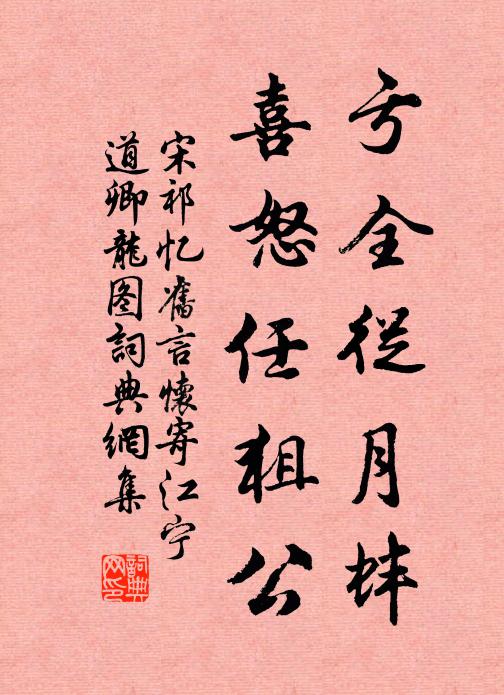 亏全從月蚌
喜怒任狙公
宋祁忆舊言懷寄江宁
道卿龍图詞典網集
詞典
网印